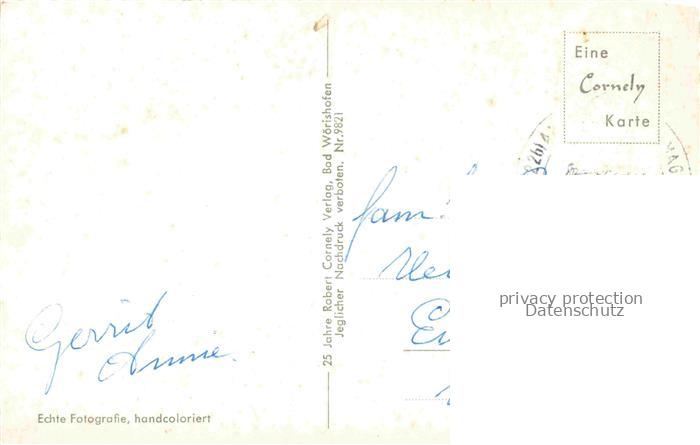 Eine
Cornely
Karte
25 Jahre Robert Cornely Verlag, Bad Wörishofen
Jeglicher Nachdruck verboten. Nr. 9821
fam.
Gerrit
Annie.
Echte Fotografie, handcoloriert
privacy protection
Datenschutz